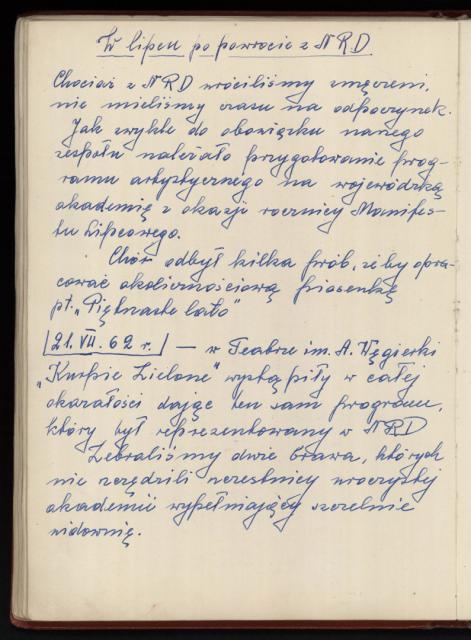 W lipcu po powrocie z NRD
Chociaż z NRD wróciliśmy zmęczeni,
nie mieliśmy czasu na odpoczynek.
Jak zwykle do obowiązku naszego
zespołu należało przygotowanie prog-
ramu artystycznego na wojewódzką
akademię z okazji rocznicy Manifes-
tu Lipcowego.
Chór odbył kilka prób, żeby opra-
cować okolicznościową piosenkę
pt. „Piętnaste lato"
21. VII. 62 r. — w Teatrze im. A. Węgierki
„Kurpie Zielone" wystąpiły w całej
okazałości dając ten sam program,
który był reprezentowany w NRD
Zebraliśmy duże brawa, których
nie szczędzili uczestnicy uroczystej
akademii wypełniający szczelnie
widownię.